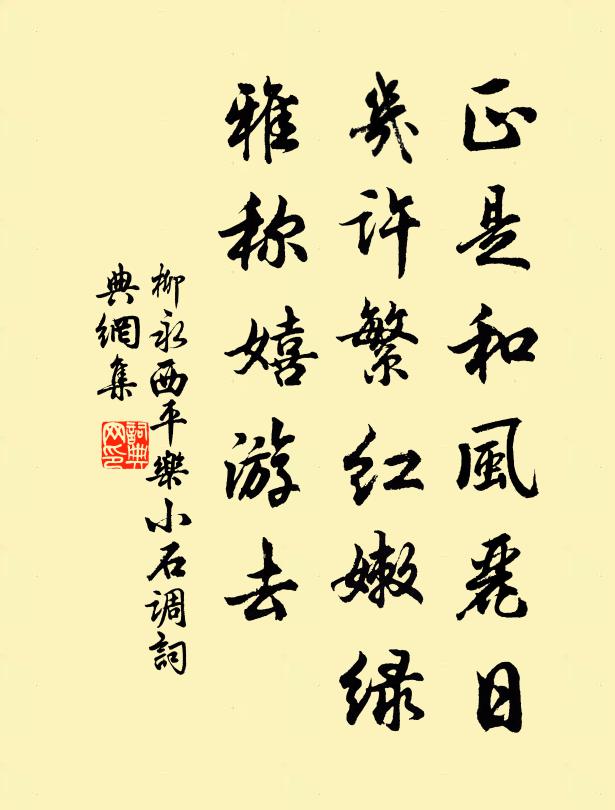 正是和風麗日
幾许繁红嫩绿
雅称嬉游去
柳永西平樂小石调詞
典網集
詞典
网印